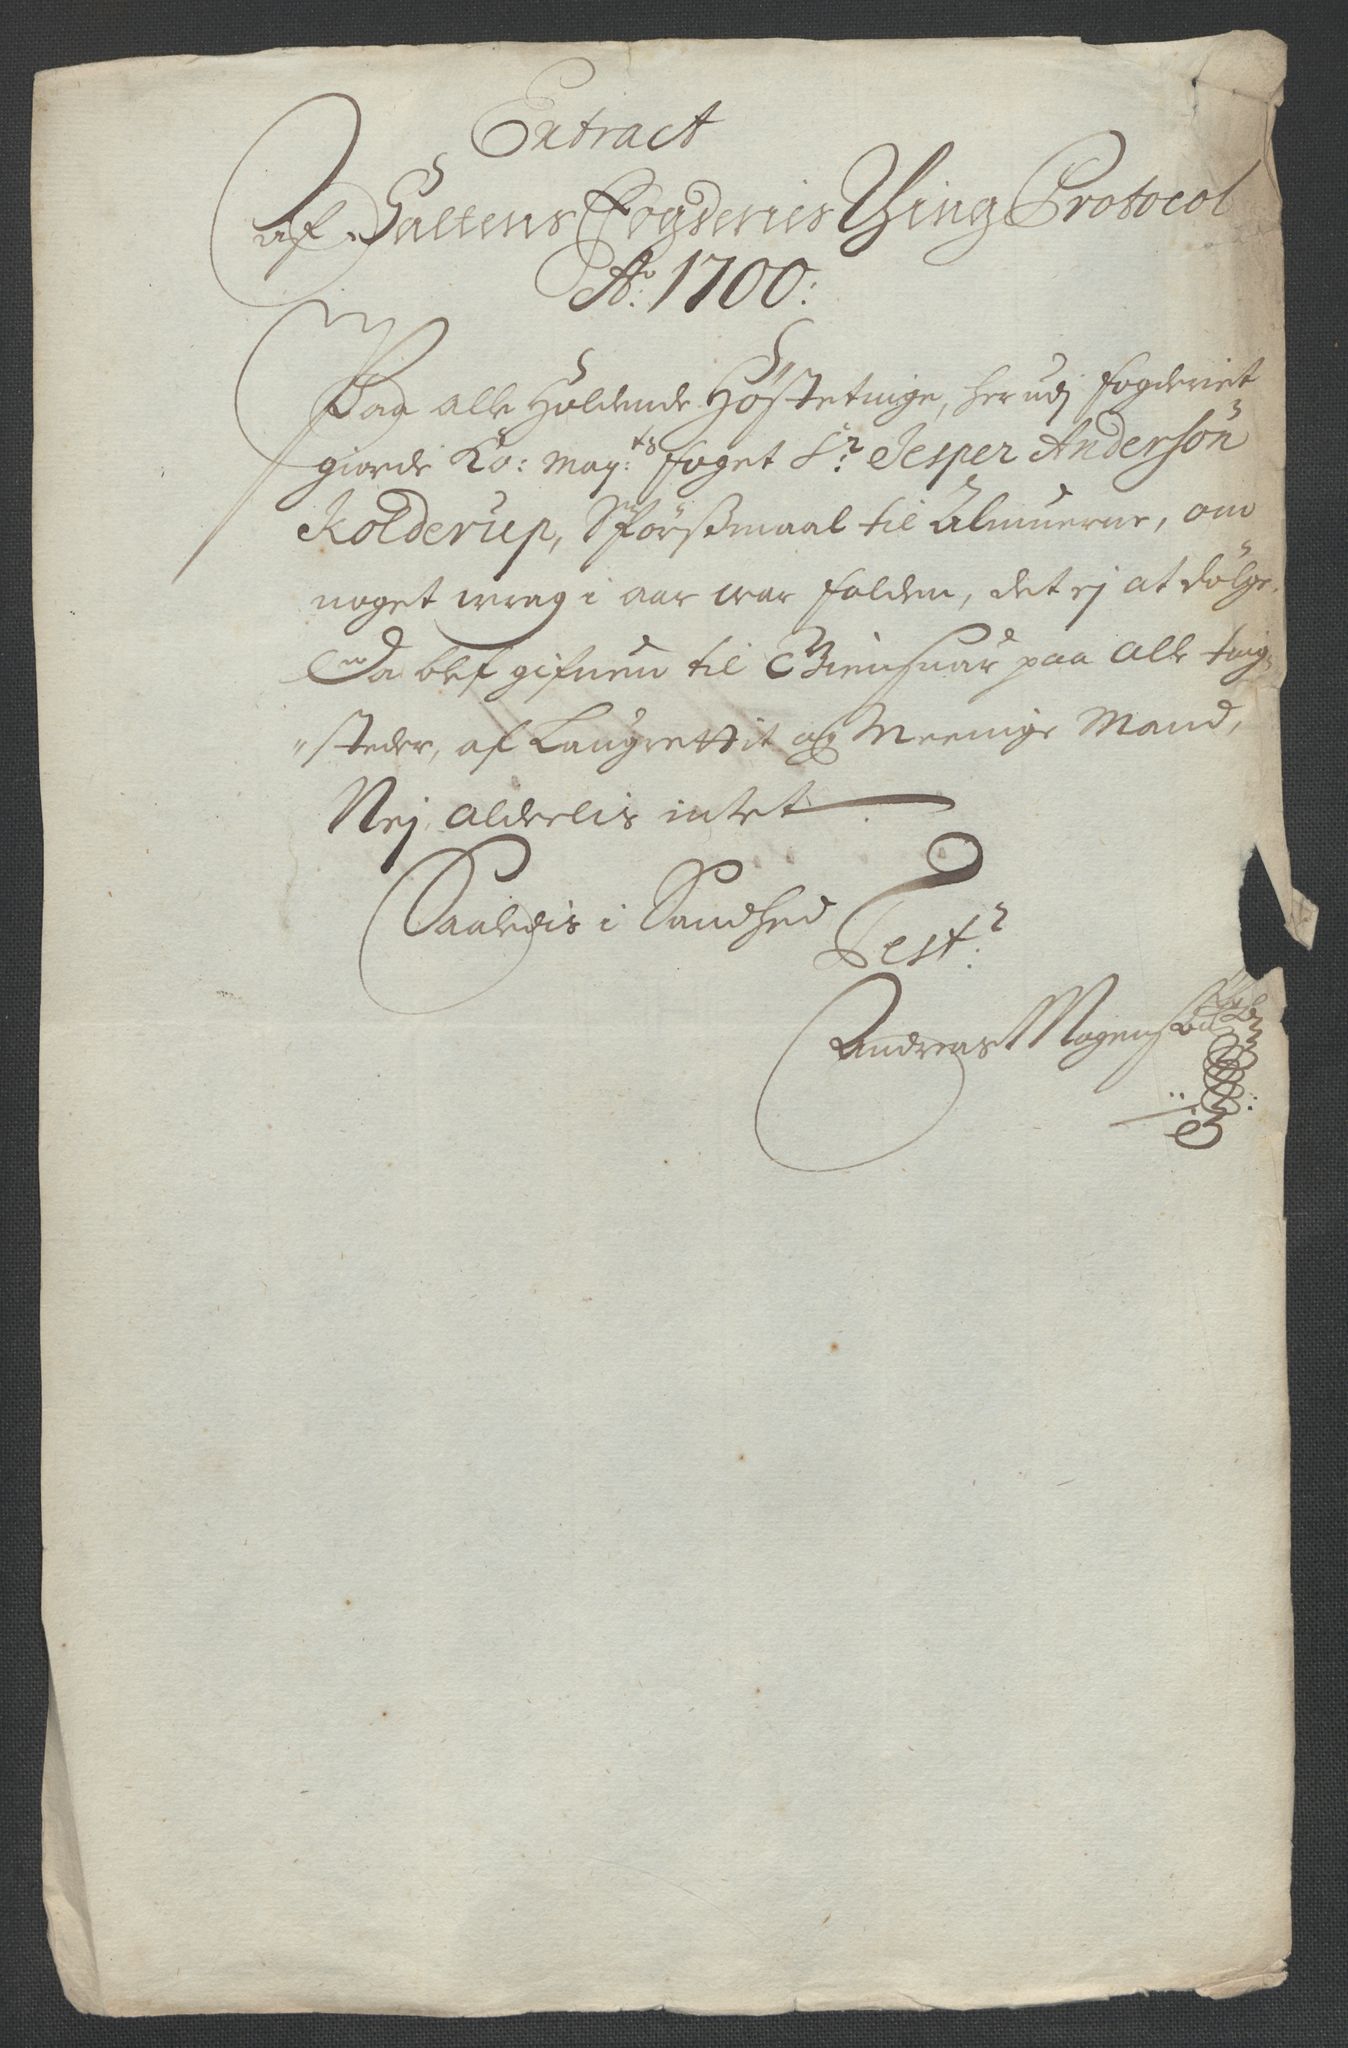 Extract
af Saltens Fogderies Thing Protocol
Ao. 1700:
Paa alle Holdende Höstetinge, her udj fogderiet
giorde Ko: May:ts foget Sr. Jesper Anderßön
Kolderup, Spörßmaal til Almuerne, om
noget wrag i aar war falden, det ej at dölge.
Da blef gifuen til Giensuar paa alle ting,,
,,steder, af Laugrettit og Meenige Mand,
Nej alderlis intet
Saaledis i Sandhed Test.r
Andreas Mogens